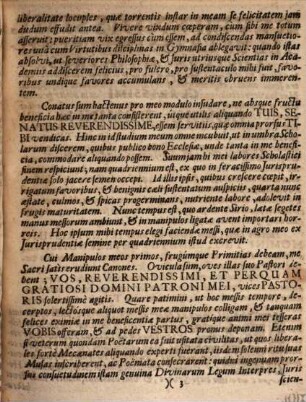 liberalitate locuples, quæ torrentis instar in meam se felicitatem jam
dudum effusit antea. Vivere vividum cœperam, cum sibi me totum
asseruit; pueritiam vix egressus cum essem, ad condiscendas mansuetio-
res unà cum Virtutibus disciplinas in Gymnasia ablegavit; quando istas
absolvi, ut severiores Philosophiæ, & Juris utriusque Scientias in Aca-
demiis addiscerem felicius, pro fultro, pro sustentaculo mihi fuit, favo-
ribus undique favores accumulans, & meritis obruens immeren-
tem.
Conatus sum hactenus pro meo modulo insudare, ne absque fructu
beneficia hæc in me tanta consisterent, ut que utilis aliquando TUIS, SE-
NATUS REVERENDISSIME, essem servitiis, quæ omnia prorsus TI-
BI venditicas. Hinc in id studium mecum omne incubui, ut in umbra Scho-
larum discerem, quibus publico bono Ecclesiæ, unde tanta in me benefi-
cia, commodare aliquando possem. Suum jam bi mei labores Scholastici
finem respiciunt, nam quadriennium est, ex quo in feracissimo Jurispru-
dentiæ solo jacere semen occœpi. Id illis ipsis, quibus crescere cœpit, ir-
rigatum favoribus, & benignis cœli sustentatum auspiciis, quarta nunc
æstate, culmos, & spicas progerminans, nutriente labore, adolevit in
frugis maturitatem. Nunc tempus est, quo ardente Sirio, lata segetes
manus messorum ambiunt, & in manipulos ligatæ avent importari hor-
reis. Hoc ipsum mihi tempus elegi faciendæ messi, quæ in agro meo ex
Jurisprudentiæ semine per quadriennium istud excrevit.
Cui Manipulos meos primos, frugúmque Primitias debeam, me
Sacri satis erudiunt Canones. Oviculæ suum, oves illas suo Pastori de-
bent; VOS, REVERENDISSIMI, ET PERQUAM
GRATIOSI DOMINI PATRONI MEI, vices PASTO-
RIS solertissimè agitis. Quare patimini, ut hoc messis tempore, de-
cerptos, lectosque aliquot messis meæ manipulos colligam, & tanquam
felices eximiæ in me beneficentiæ partus, gratique animi mei tesseras
VOBIS offeram, & ad pedes VESTROS pronus deponam. Etenim
si veterum quondam Poëtarum ea fuit usitata civilitas, ut quos libera-
les forte Mecœnates aliquando experti fuerant, iisdem solemni ritu suas
Musas inscriberent, ac Poëmata consecrarent: quidni ingenuam pror-
sus consuetudinem istam genuina Divinarum Legum Interpres, Juris
)( 3
scien-